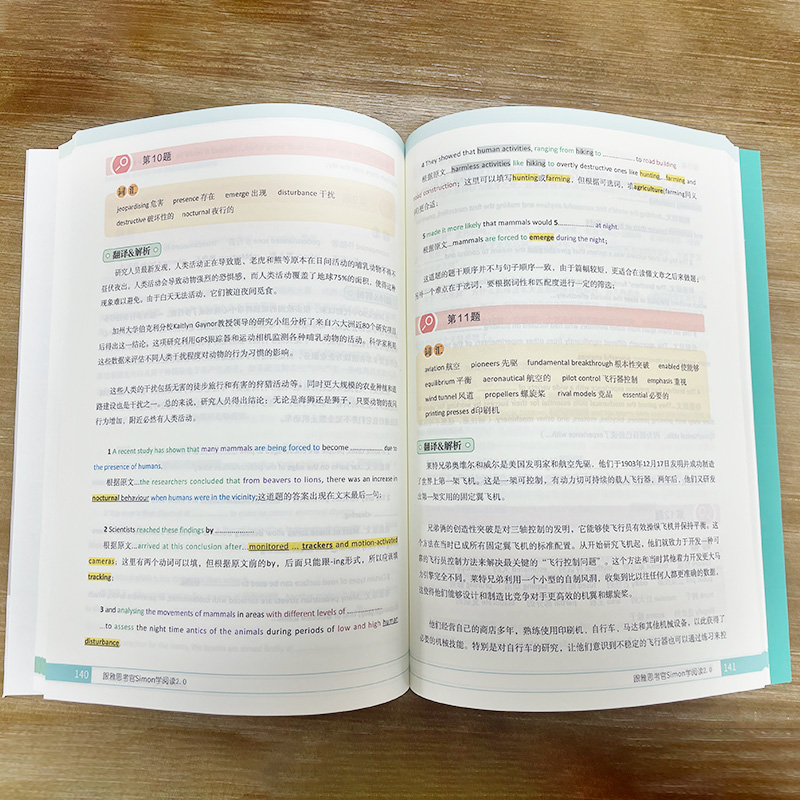 第10题
词 汇
jeopardising 危害 presence 存在 emerge 出现 disturbance 干扰
destructive 破坏性的 nocturnal 夜行的
翻译&解析
研究人员最新发现，人类活动正在导致鹿、老虎和熊等原本在日间活动的哺乳动物不得不
昼伏夜出。人类活动会导致动物强烈的恐惧感，而人类活动覆盖了地球75%的面积，使得这种
现象难以避免。由于白天无法活动，它们被迫夜间觅食。
加州大学伯克利分校Kaitlyn Gaynor教授领导的研究小组分析了来自六大洲近80个研究项目
后得出这一结论。这项研究利用GPS跟踪器和运动相机监测各种哺乳动物的活动。科学家利用
这些数据来评估不同人类干扰程度对动物的行为习惯的影响。
这些人类的干扰包括无害的徒步旅行和有害的狩猎活动等。同时更大规模的农业种植和道
路建设也是干扰之一。总的来说，研究人员得出结论：无论是海狸还是狮子，只要动物的夜间
行为增加，附近必然有人类活动。
1 A recent study has shown that many mammals are being forced to become .................. due to
the presence of humans.
根据原文...the researchers concluded that from beavers to lions, there was an increase in
nocturnal behaviour when humans were in the vicinity;这道题的答案出现在文末最后一句；
2 Scientists reached these findings by ..................
根据原文...arrived at this conclusion after...monitored ... trackers and motion-activated
cameras；这里有两个动词可以填，但根据原文前的by，后面只能跟-ing形式，所以应该填
tracking；
3 and analysing the movements of mammals in areas with different levels of ..................
...to assess the night time antics of the animals during periods of low and high human
disturbance.
140 跟雅思考官Simon学阅读2.0
4 They showed that human activities, ranging from hiking to .................. to road building.
根据原文...harmless activities like hiking to overtly destructive ones like hunting...farming and
road construction；这里可以填写hunting或farming，但根据可选词，填agriculture(farming同义
词)更合适；
5 made it more likely that mammals would 5.................. at night.
根据原文...mammals are forced to emerge during the night；
这道题的题干顺序并不与句子顺序一致，由于篇幅较短，更适合在读懂文章之后来做题；
另外一个难点在于选词，要根据词性和匹配度进行一定的筛选；
第11题
词 汇
aviation 航空 pioneers 先驱 fundamental breakthrough 根本性突破 enabled 使能够
equilibrium 平衡 aeronautical 航空的 pilot control 飞行器控制 emphasis 重视
wind tunnel 风道 propellers 螺旋桨 rival models 竞品 essential 必要的
printing presses d印刷机
翻译&解析
莱特兄弟奥维尔和威尔是美国发明家和航空先驱，他们于1903年12月17日发明并成功制造
了世界上第一架飞机。这是一架可控制，有动力切可持续的载人飞行器。两年后，他们又研发
出第一架实用的固定翼飞机。
兄弟俩的创造性突破是对三轴控制的发明，它能够使飞行员有效操纵飞机并保持平衡。这
个方法在当时已成所有固定翼飞机的标准配置。从开始研究飞机起，他们就致力于开发一种可
靠的飞行员控制方法来解决最关键的“飞行控制问题”。这个方法和当时其他着力开发更大马
力引擎完全不同。莱特兄弟利用一个小型的自制风洞，收集到比以往任何人都更准确的数据，
这使得他们能够设计和制造比竞争对于更高效的机翼和螺旋桨。
他们经营自己的商店多年，熟练使用印刷机、自行车、马达和其他机械设备，以此获得了
必要的机械技能。特别是对自行车的研究，让他们意识到不稳定的飞行器也可以通过练习来控
跟雅思考官Simon学阅读2.0 141